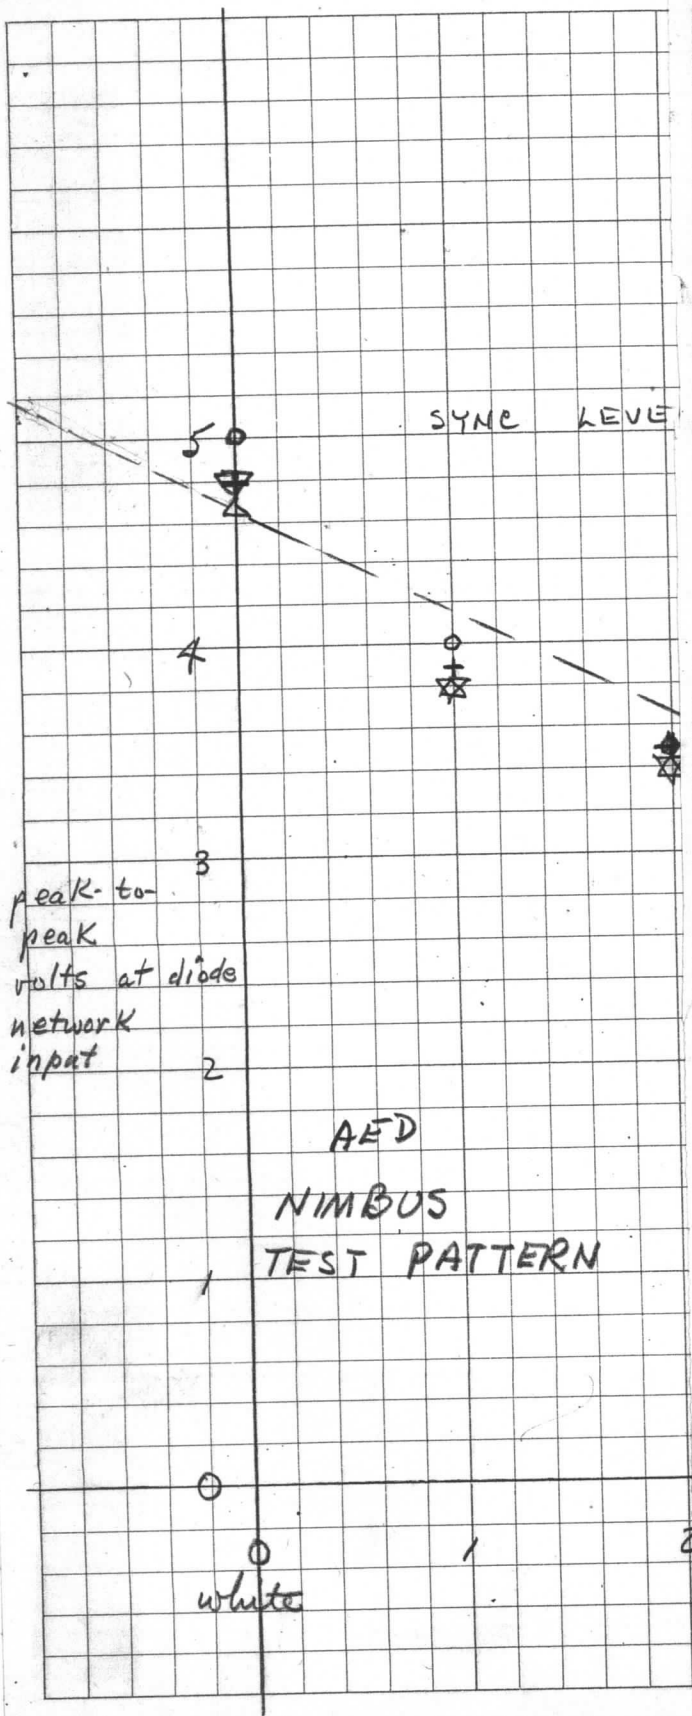 SYNC LEVE
5
4
3
peak-to-
peak
volts at diode
network
input
2
AED
NIMBUS
TEST PATTERN
1
0
0 1 2
white